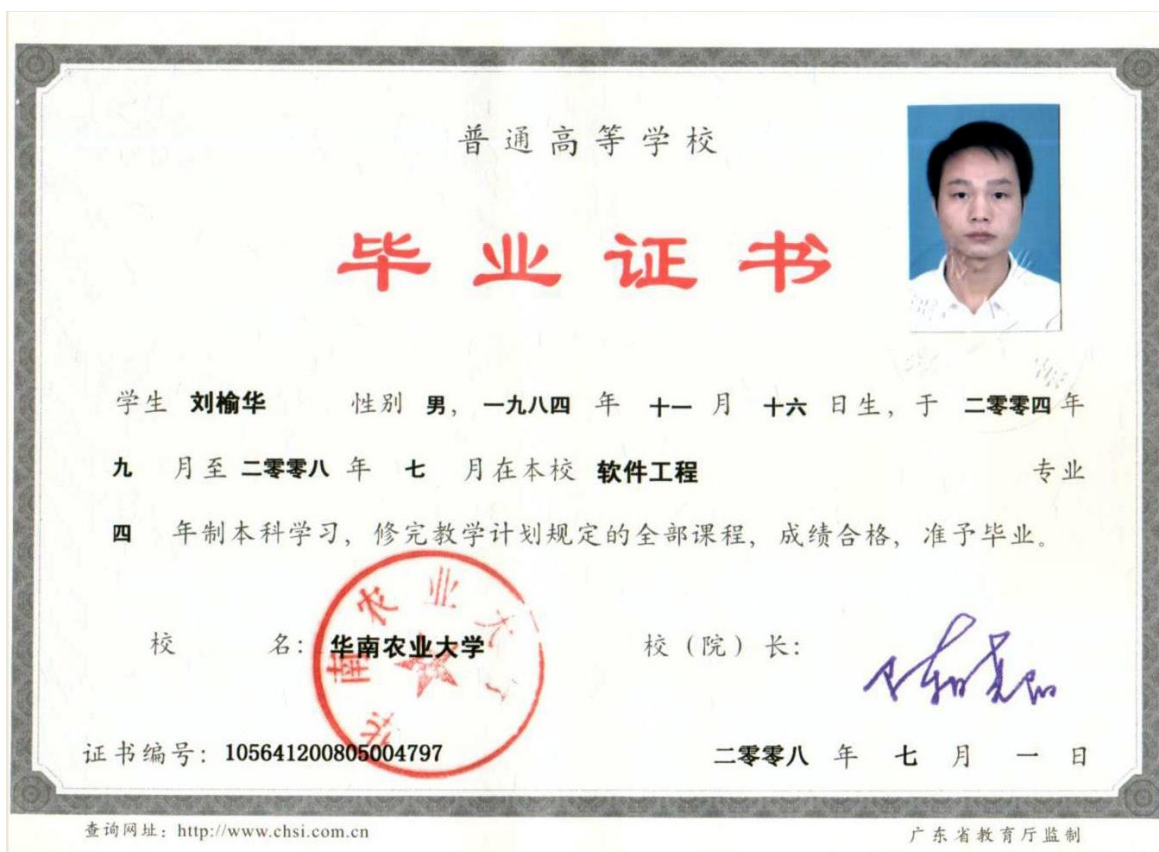 普通高等学校
毕业证书
学生 刘榆华 性别 男，一九八四 年 十一 月 十六 日生，于 二零零四 年
九 月至 二零零八 年 七 月在本校 软件工程 专业
四 年制本科学习，修完教学计划规定的全部课程，成绩合格，准予毕业。
华南农业大学
校 名：华南农业大学 校（院）长：
证书编号：105641200805004797 二零零八 年 七 月 一 日
查询网址：http://www.chsi.com.cn 广东省教育厅监制